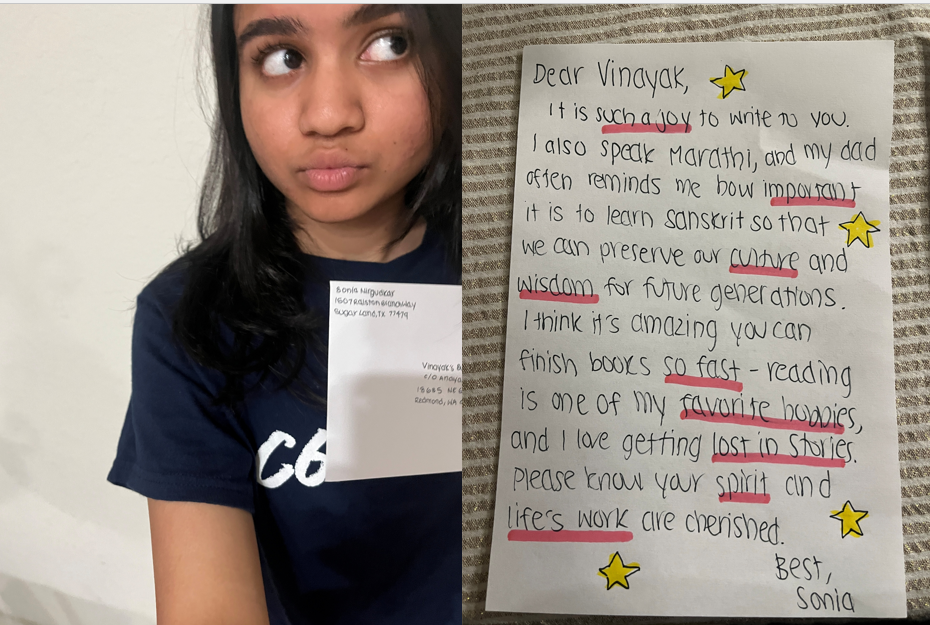 Sonia Nirgudkar
1507 Ralston Branch Way
Sugar Land, TX 77479
Vinayak's
c/o
18685 NE
Redmond, WA
Dear Vinayak,
It is such a joy to write to you.
I also speak Marathi, and my dad
often reminds me how important
it is to learn sanskrit so that
we can preserve our culture and
wisdom for future generations.
I think it's amazing you can
finish books so fast - reading
is one of my favorite hobbies,
and I love getting lost in stories.
Please know your spirit and
life's work are cherished.
Best,
Sonia